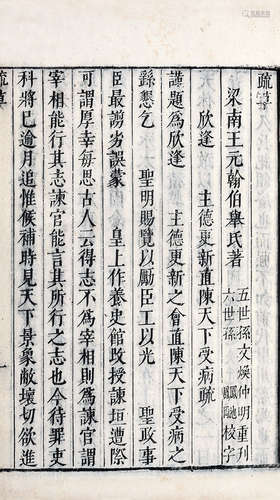 疏草
梁南王元翰伯舉氏著
五世孫文煥仲明重刊
六世孫 校字
欣逢 主德更新直陳天下受病疏
謹題為欣逢 主德更新之會直陳天下受病之
繇懇乞 聖明賜覽以勵臣工以光 聖政事
臣最謭劣誤蒙 皇上作養史館改授諫垣遭際
可謂厚幸每思古人云得志不為宰相則為諫官謂
宰相能行其志諫官能言其所行之志也今待罪吏
科將已逾月追惟候補時見天下景象敝壞切欲進
疏草